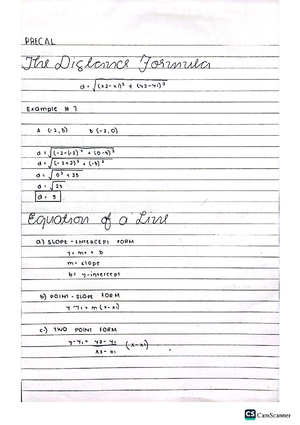 PRECAL
The Distance Formula
d = √(x2-x1)² + (y2-y1)²
Example # 1
A (-2,5) B (-2,0)
d = √(-2-(-2))² + (0-5)²
d = √(-2+2)² + (-5)²
d = √0² + 25
d = √25
d = 5
Equation of a Line
a) SLOPE - INTERCEPT FORM
y = mx + b
m = slope
b = y-intercept
b) POINT - SLOPE FORM
y-y1 = m (x-x1)
c) TWO POINT FORM
y-y1 = y2-y1 (x-x1)
x2-x1
CS CamScanner